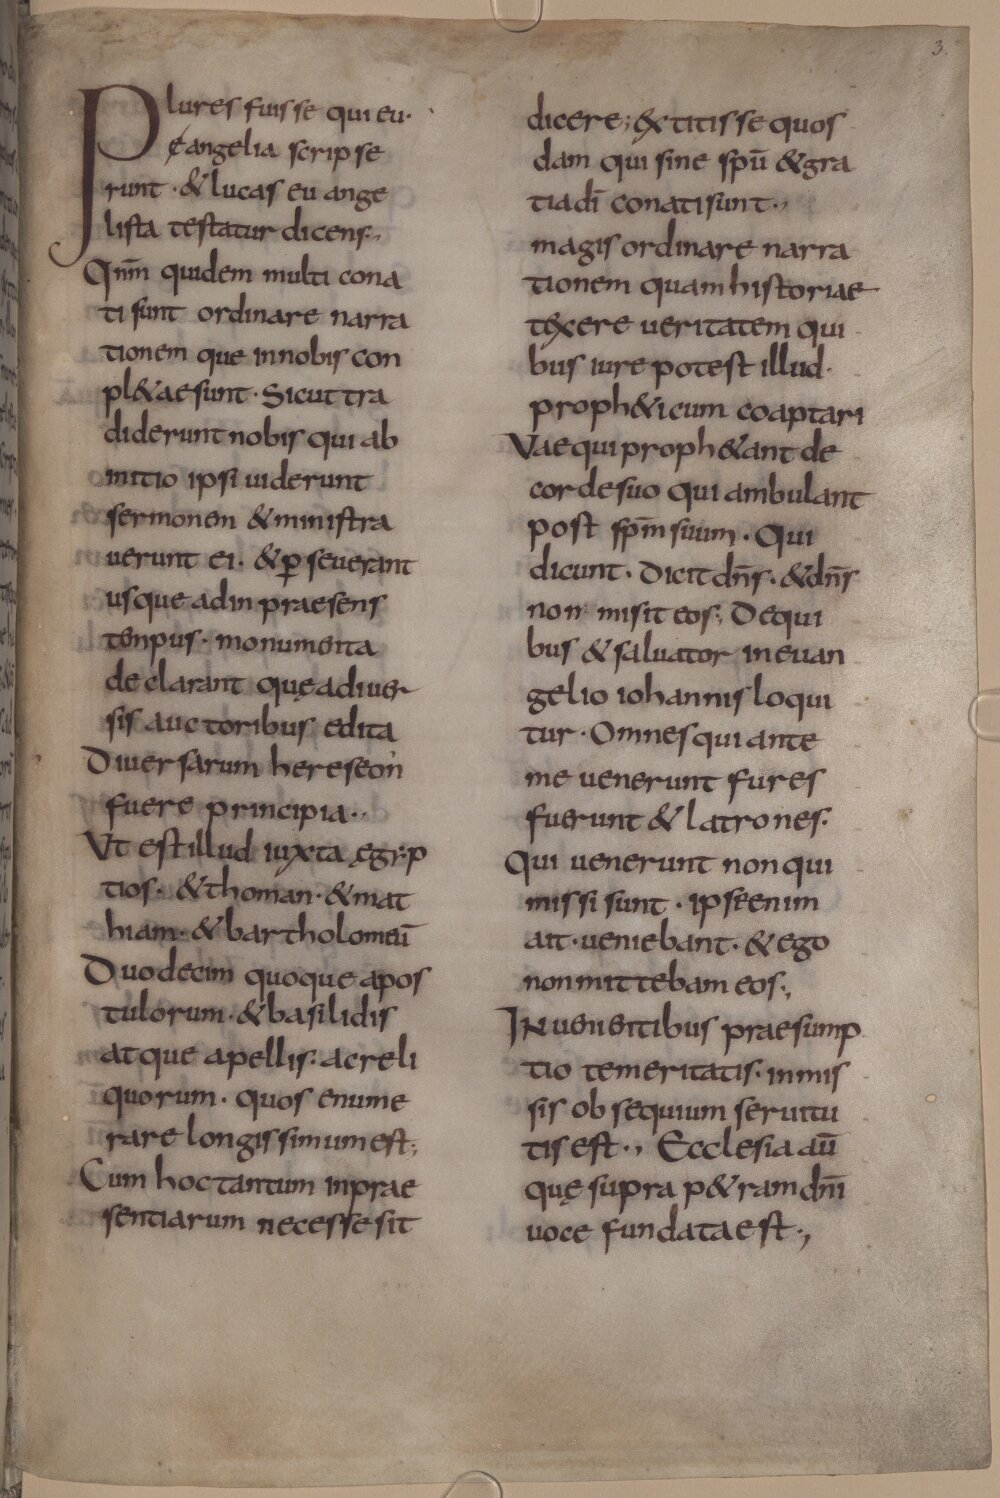 3.
Plures fuisse qui eu·
eangelia scripse
runt · & lucas eu ange
lista testatur dicens·,
Qnm̄ quidem multi cona
ti sunt ordinare narra
tionem que innobis con
pl&ae sunt · Sicut tra
diderunt nobis qui ab
initio ipsi uiderunt
sermonem & ministra
uerunt ei · & ꝑseuerant
usque adin praesens
tenpus · monumenta
declarant quę adiuer
sis auctoribus edita
Diuersarum hereseon
fuere principia ·,
Vt est illud iuxta ęgip
tios · & thoman · & mat
hiam · & bartholomeū
Duodecim quoque apos
tulorum · & basilidis
atque apellis · ac reli
quorum · quos enume
rare longissimum est;
Cum hoc tantum inprae
sentiarum necesse sit
dicere; &xtitisse quos
dam qui sine spū & gra
tia dī conati sunt ·,
magis ordinare narra
tionem quam historiae
texere ueritatem qui
bus iure potest illud ·
proph&icum coaptari
Vae qui proph&ant de
corde suo qui ambulant
post spm̄ suum · Qui
dicunt · Dicit dn̄s · & dn̄s
non misit eos; De qui
bus & saluator in euan
gelio iohannis loqui
tur · Omnes qui ante
me uenerunt fures
fuerunt & latrones:
Qui uenerunt non qui
missi sunt · ipse enim
ait · ueniebant · & ego
non mittebam eos;,
IN uenientibus praesump
tio temeritatis · in mis
sis obsequium seruitu
tis est ·, Ecclesia aū
quę supra p&ram dnī
uoce fundata est ·,